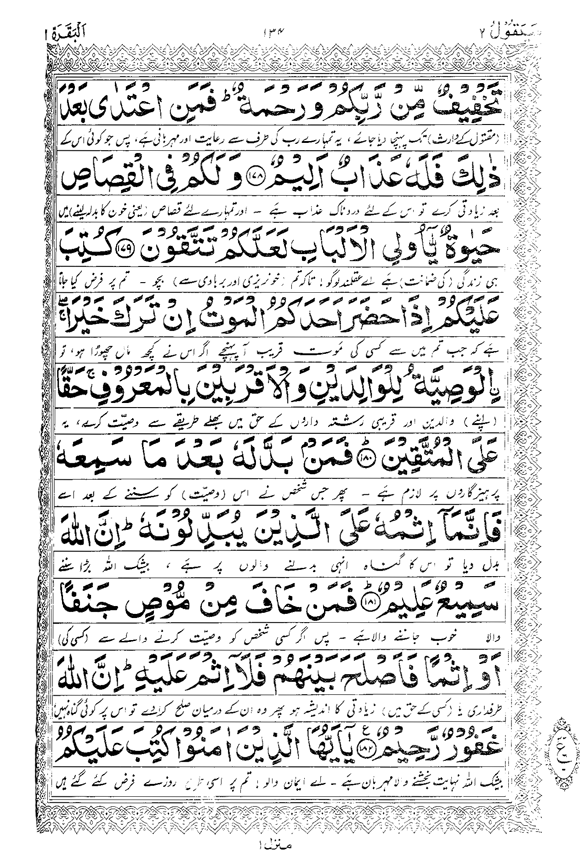 سَيَقُولُ ٢
١٣٤
اَلْبَقَرَة
تَخْفِيْفٌ مِّنْ رَّبِّكُمْ وَرَحْمَةٌ ؕ فَمَنِ اعْتَدٰى بَعْدَ
(مقتول کے وارث) تک پہنچا دیا جائے، یہ تمہارے رب کی طرف سے رعایت اور مہربانی ہے، پس جو کوئی اس کے
ذٰلِكَ فَلَهٗ عَذَابٌ اَلِيْمٌ ﴿۱۷۸﴾ وَلَكُمْ فِى الْقِصَاصِ
بعد زیادتی کرے تو اس کے لئے دردناک عذاب ہے - اور تمہارے لئے قصاص (یعنی خون کا بدلہ لینے) میں
حَيٰوةٌ يّٰۤاُولِى الْاَلْبَابِ لَعَلَّكُمْ تَتَّقُوْنَ ﴿۱۷۹﴾ كُتِبَ
ہی زندگی (کی ضمانت) ہے اے عقلمند لوگو! تاکہ تم (خونریزی اور بربادی سے) بچو - تم پر فرض کیا جاتا
عَلَيْكُمْ اِذَا حَضَرَ اَحَدَكُمُ الْمَوْتُ اِنْ تَرَكَ خَيْرَا ۖۚ
ہے کہ جب تم میں سے کسی کی موت قریب آ پہنچے اگر اس نے کچھ مال چھوڑا ہو، تو
اِۨلْوَصِيَّةُ لِلْوَالِدَيْنِ وَالْاَقْرَبِيْنَ بِالْمَعْرُوْفِ ۚ حَقًّا
(اپنے) والدین اور قریبی رشتہ داروں کے حق میں بھلے طریقے سے وصیّت کرے، یہ
عَلَى الْمُتَّقِيْنَ ؕ ﴿۱۸۰﴾ فَمَنْۢ بَدَّلَهٗ بَعْدَ مَا سَمِعَهٗ
پرہیزگاروں پر لازم ہے - پھر جس شخص نے اس (وصیّت) کو سننے کے بعد اسے
فَاِنَّمَاۤ اِثْمُهٗ عَلَى الَّذِيْنَ يُبَدِّلُوْنَهٗ ؕ اِنَّ اللّٰهَ
بدل دیا تو اس کا گناہ انہی بدلنے والوں پر ہے، بیشک اللہ بڑا سننے
سَمِيْعٌ عَلِيْمٌ ؕ ﴿۱۸۱﴾ فَمَنْ خَافَ مِنْ مُّوْصٍ جَنَفًا
والا خوب جاننے والا ہے - پس اگر کسی شخص کو وصیّت کرنے والے سے (کسی کی)
اَوْ اِثْمًا فَاَصْلَحَ بَيْنَهُمْ فَلَاۤ اِثْمَ عَلَيْهِ ؕ اِنَّ اللّٰهَ
طرفداری یا (کسی کے حق میں) زیادتی کا اندیشہ ہو پھر وہ ان کے درمیان صلح کرا دے تو اس پر کوئی گناہ نہیں
غَفُوْرٌ رَّحِيْمٌ ﴿۱۸۲﴾ يٰۤاَيُّهَا الَّذِيْنَ اٰمَنُوْا كُتِبَ عَلَيْكُمُ
بیشک اللہ نہایت بخشنے والا مہربان ہے - اے ایمان والو! تم پر اسی روزے فرض کئے گئے ہیں
منزل ١